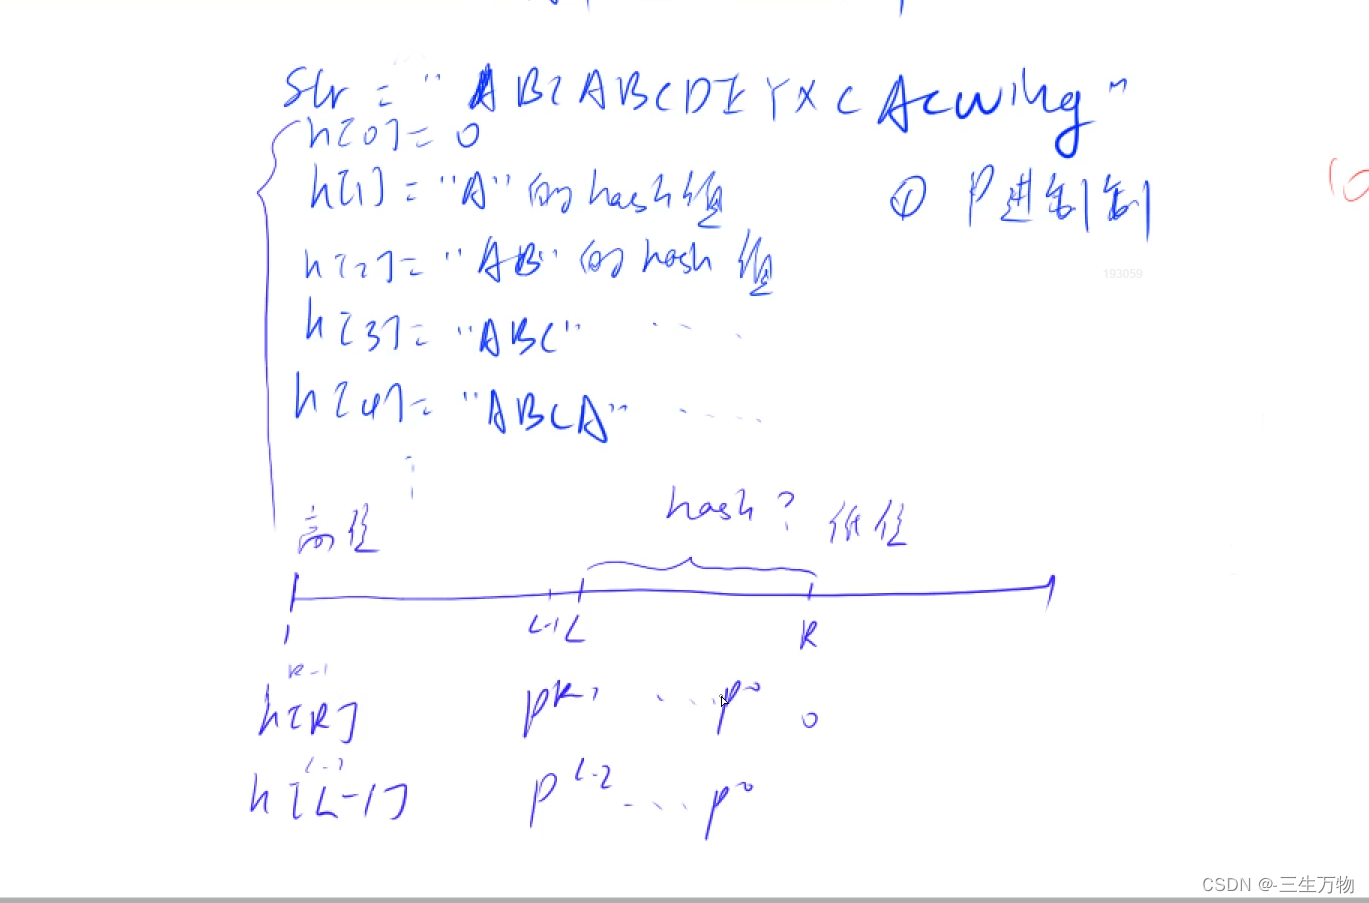 Str = "ABCABCDEYXCAcwing"
h[0] = 0
h[1] = "A" 的 hash 值
① P进制制
h[2] = "AB" 的 hash 值
193059
h[3] = "ABC" ....
h[4] = "ABCA" ....
hash?
高位 低位
1 L-1 L R
R-1
h[R] p^R-1 ... p^0 0
L-2
h[L-1] p^L-2 ... p^0
CSDN @-三生万物